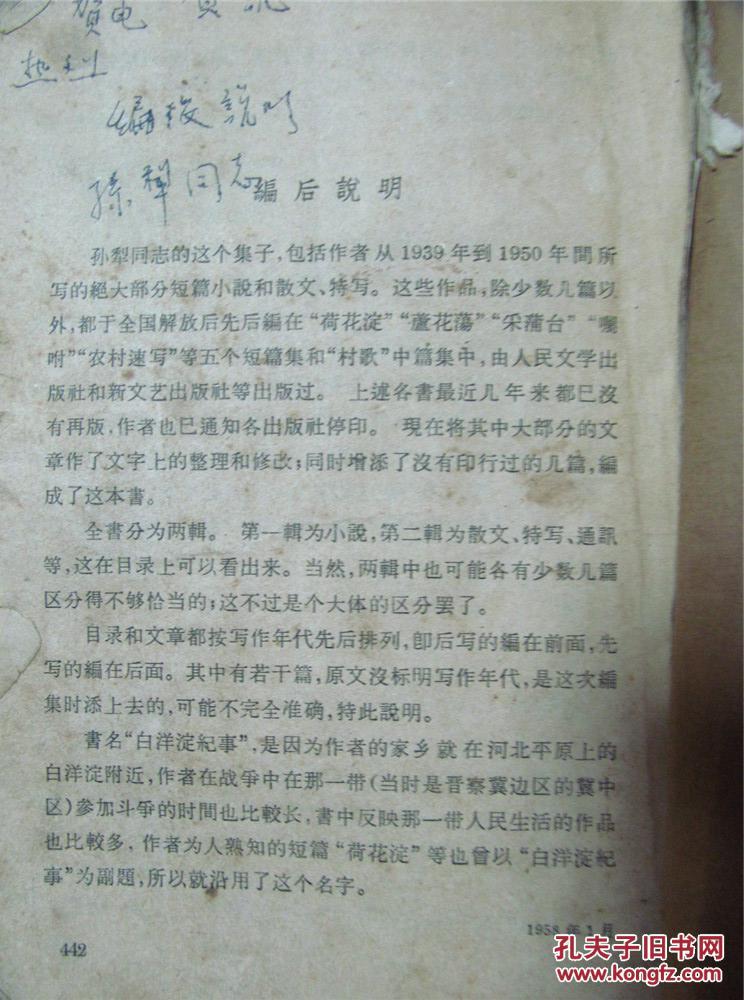 賀电
热利
编後説明
孫犁同志
編后說明
孙犁同志的这个集子，包括作者从1939年到1950年間所
写的絕大部分短篇小說和散文、特写。这些作品，除少数几篇以
外，都于全国解放后先后編在“荷花淀”“蘆花蕩”“采蒲台”“囑
咐”“农村速写”等五个短篇集和“村歌”中篇集中，由人民文学出
版社和新文艺出版社等出版过。 上述各書最近几年来都已沒
有再版，作者也已通知各出版社停印。 現在将其中大部分的文
章作了文字上的整理和修改；同时增添了沒有印行过的几篇，編
成了这本書。
全書分为两輯。 第一輯为小說，第二輯为散文、特写、通訊
等，这在目录上可以看出来。当然，两輯中也可能各有少数几篇
区分得不够恰当的；这不过是个大体的区分罢了。
目录和文章都按写作年代先后排列，卽后写的編在前面，先
写的編在后面。其中有若干篇，原文沒标明写作年代，是这次編
集时添上去的，可能不完全准确，特此說明。
書名“白洋淀紀事”，是因为作者的家乡就在河北平原上的
白洋淀附近，作者在战爭中在那一带（当时是晋察冀边区的冀中
区）参加斗爭的时間也比較长，書中反映那一带人民生活的作品
也比較多，作者为人熟知的短篇“荷花淀”等也曾以“白洋淀紀
事”为副題，所以就沿用了这个名字。
1958年1月
442
孔夫子旧书网
www.kongfz.com